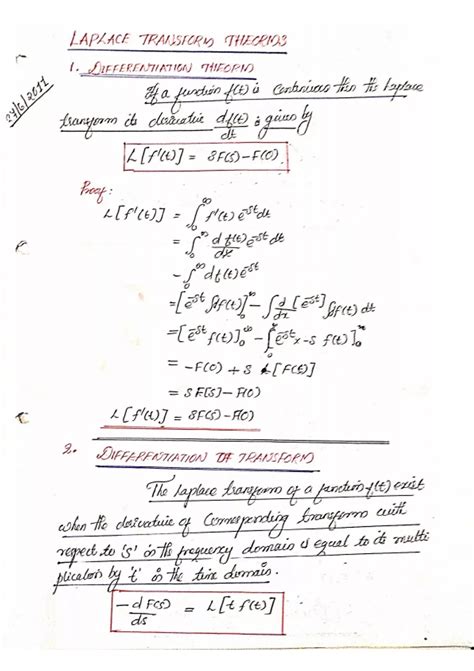 LAPLACE TRANSFORM THEORIOS
27/6/2011
1. DIFFERENTIATION THEORM
If a function f(t) is continuous then the Laplace
transform its derivative df(t)/dt is given by
L[f'(t)] = SF(S)-F(0).
Proof:
L[f'(t)] = ∫₀^∞ f'(t) e^-st dt
= ∫₀^∞ df(t)/dx e^-st dt
- ∫₀^∞ df(t) e^-st
= [e^-st ∫df(t)]₀^∞ - ∫ d/dx [e^-st] ∫df(t) dt
= [e^-st f(t)]₀^∞ - ∫₀^∞[e^-st x-s f(t)]₀^∞
= -F(0) + S L[F(t)]
= SF(S)-F(0)
L[f'(t)] = SF(S)-F(0)
2. DIFFERENTIATION OF TRANSFORM
The Laplace transform of a function f(t) exist
when the derivative of Corresponding transform with
respect to 'S' in the frequency domain is equal to its multi
plication by 't' in the time domain.
-dF(S)/ds = L[t f(t)]